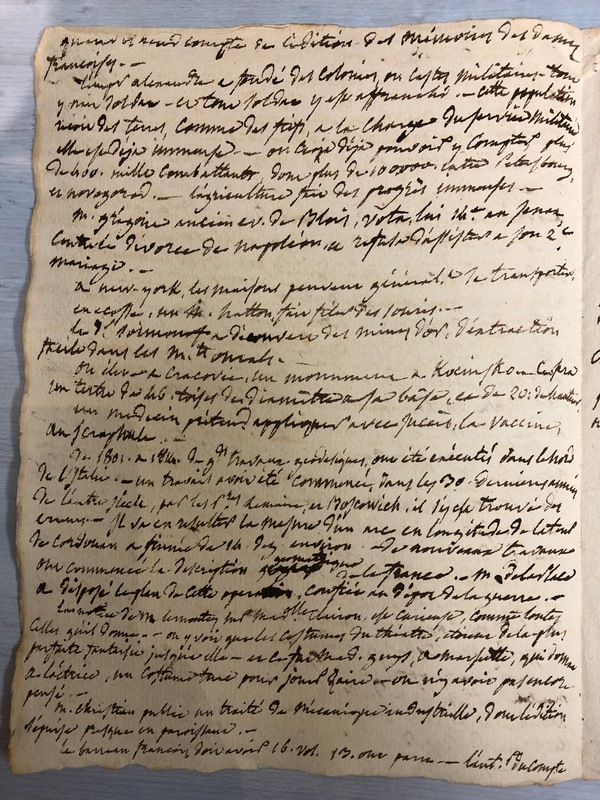 rend compte de l'édition des mémoires des dames
françoises. —
alexandre a fondé des colonies, ou castes militaires – tous
y sont soldats – et tout soldat y est affranchi. – cette population
des terres, comme des forts, a la charge du service militaire
elle est déjà immense. – on croit déjà pouvoir y compter plus
de 400. mille combattants, dont plus de 100000. entre Petersbourg,
et novogorod. — l'agriculture fait des progrès immenses. —
m. grégoire ancien ev. de Blois, vota, lui 14e. au Senat
contre le divorce de napoléon, et refusa d'assister a son 2e.
mariage. —
a new-york, les maisons peuvent se transporter.
en ecosse, un m. hutton, fait filer des souris. —
le Dr. a découvert des mines d'or, d'extraction
facile dans les m.
on élève a Cracovie, un monument a Kocinsko – ce sera
un tertre de 46. toises de diamètre a sa base, et de 20. de hauteur
un médecin prétend appliquer avec succès, la vaccine,
au scrophule. —
de 1801. a 1814. de gds travaux géodésiques, ont été exécutés dans le nord
de l'Italie. – un travail avoit été commencé, dans les 30. dernieres années
de l'autre siècle, par les et Boscowich, il s'est trouvé des
erreurs. – Il va en résulter la mesure d'un arc en longitude de la tour
de cordouan a fiume de 14. deg environ. – de nouveaux travaux
ont commencé la description géométrique
de la france. – m. delaplace
a disposé le plan de cette opération, confiée au dépot de la guerre. —
la notice de m. lemontey sur madlle Clairon, est curieuse, comme toutes
celles qu'il donne. – on y voit que les costumes du théatre, étoient de la plus
parfaite fantaisie jusqu'a elle – et ce fut mad. a marseille, qui donna
a l'actrice, un costume turc pour jouer Zaïre – on n'y avoit pas encore
pensé. —
m. christian publie un traité de mécanique industrielle, dont l'édition
s'épuise presque en paroissant. —
le barreau françois, doit avoir 16. vol. 13. ont paru – l'aut. du compte